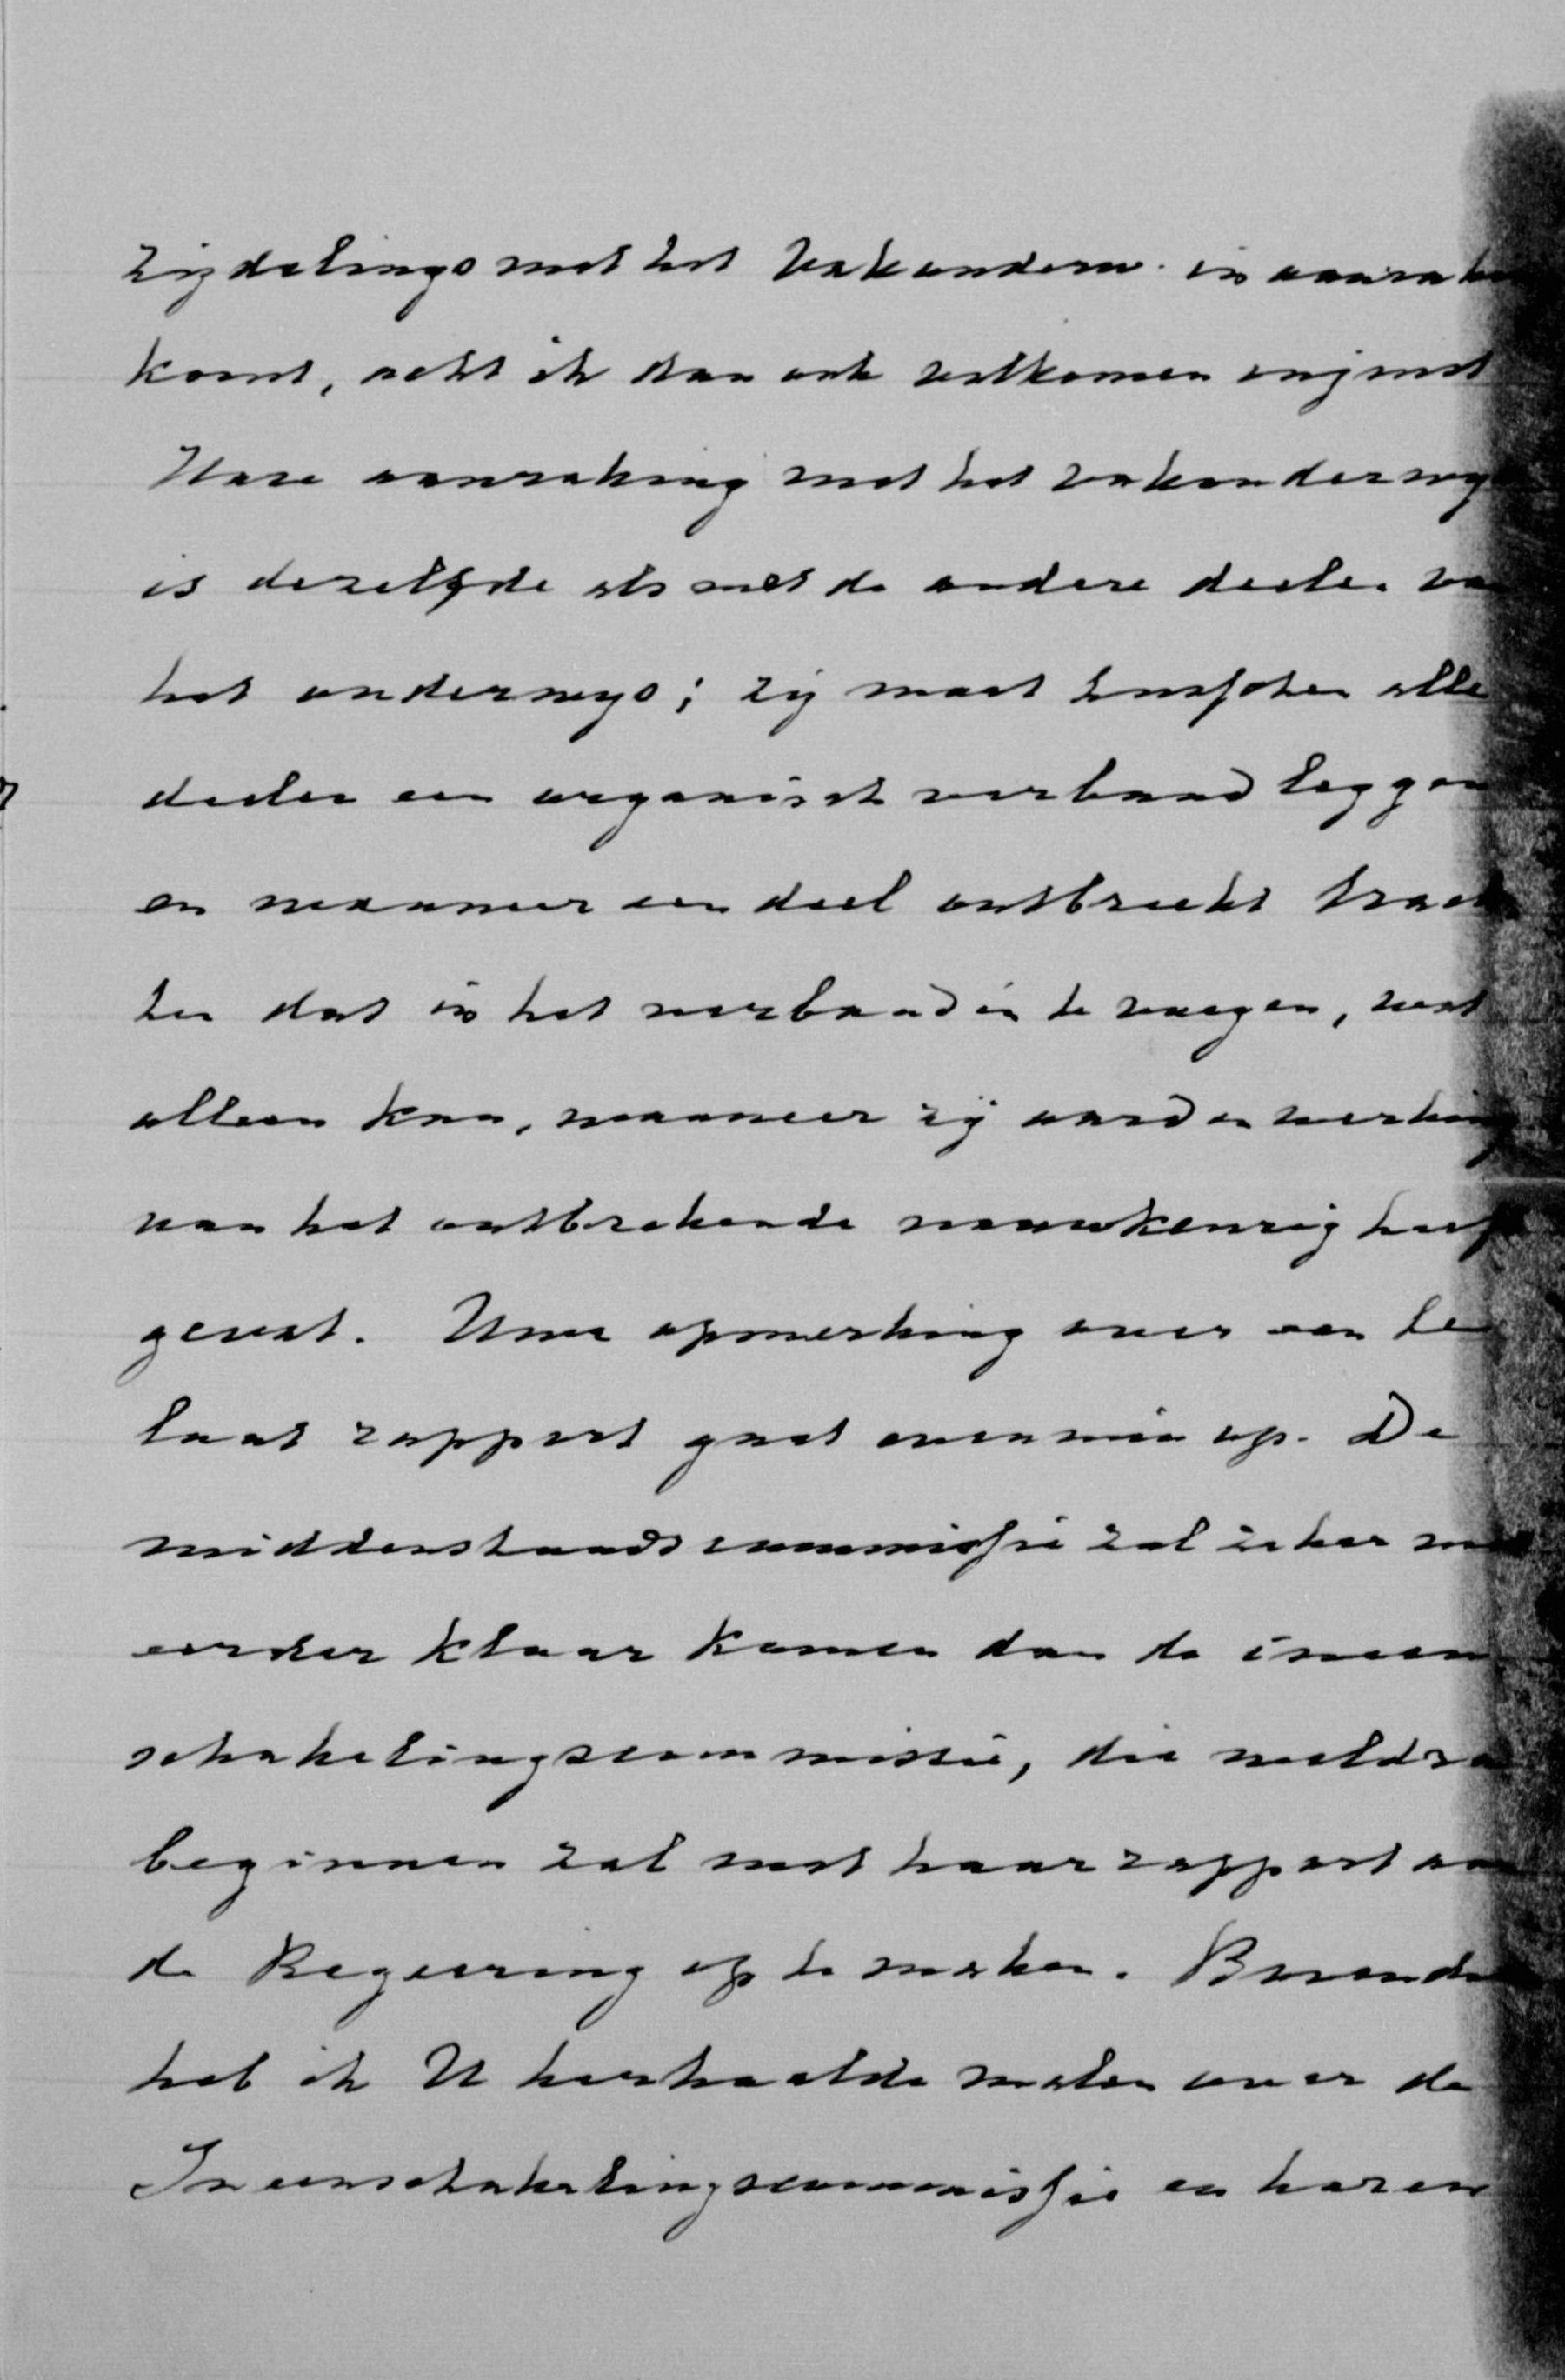 zijdelings met het Vakonderw. in aanrak
komt, acht ik dan ook volkomen onjuist
Hare aanraking met het vakonderwijs
is dezelfde als met de andere deelen va
het onderwijs; zij moet tusschen alle
deelen een organisch verband leggen
en wanneer een deel ontbreekt trach
ten dat in het verband in te voegen, wat
alleen kan, wanneer zij aard en werking
van het ontbrekende nauwkeurig heeft
gevat. Uwe opmerking over een te
laat rapport gaat evenmin op. De
middenstandscommissie zal zeker niet
eerder klaar komen dan de ineen
schakelingscommissie, die weldra
beginnen zal met haar rapport aan
de Regeering op te maken. Bovendien
heb ik U herhaalde malen over de
Ineenschakelingscommissie en haren